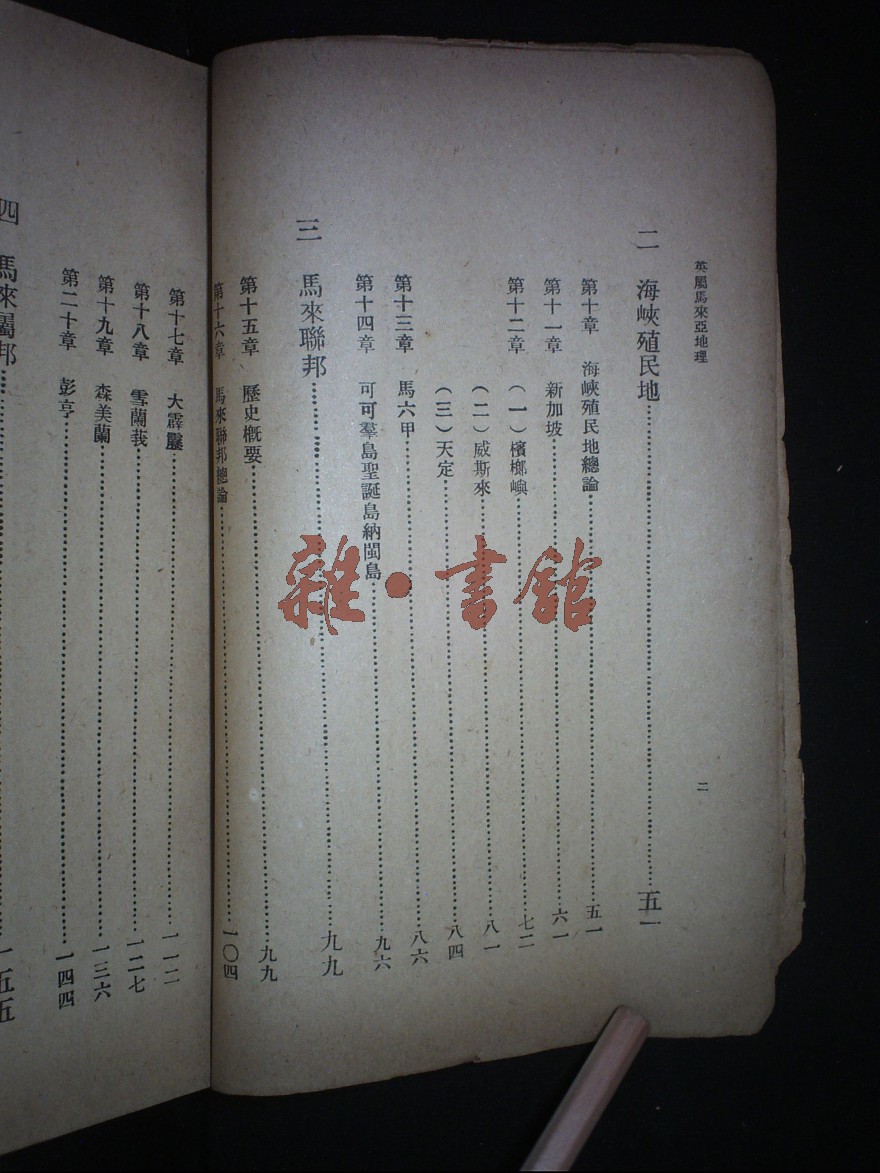 英屬馬來亞地理
二
二 海峽殖民地……五一
第十章 海峽殖民地總論……五一
第十一章 新加坡……六一
第十二章 (一)檳榔嶼……七二
(二)威斯來……八一
(三)天定……八四
第十三章 馬六甲……八六
第十四章 可可羣島聖誕島納閩島……九六
三 馬來聯邦……九九
第十五章 歷史概要……九九
第十六章 馬來聯邦總論……一〇四
第十七章 大霹靂……一一二
第十八章 雪蘭莪……一二七
第十九章 森美蘭……一三六
第二十章 彭亨……一四四
四 馬來屬邦……一五五
雜·書館